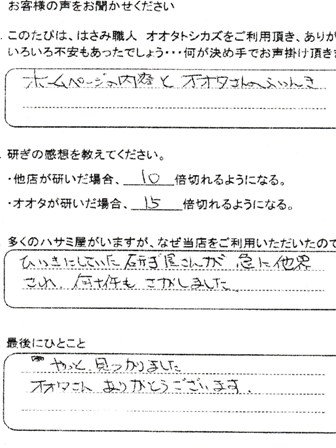 お客様の声をお聞かせください
.このたびは、はさみ職人 オオタトシカズをご利用頂き、ありが
いろいろ不安もあったでしょう・・・何が決め手でお声掛け頂き
ホームページの内容と オオタさんのふんいき
.研ぎの感想を教えてください。
・他店が研いだ場合、 10 倍切れるようになる。
・オオタが研いだ場合、 15 倍切れるようになる。
多くのハサミ屋がいますが、なぜ当店をご利用いただいたので
ひいきにしていた研ぎ屋さんが 急に他界
され、何十件も さがしました
最後にひとこと
やっと 見つかりました
オオタさん ありがとうございます。